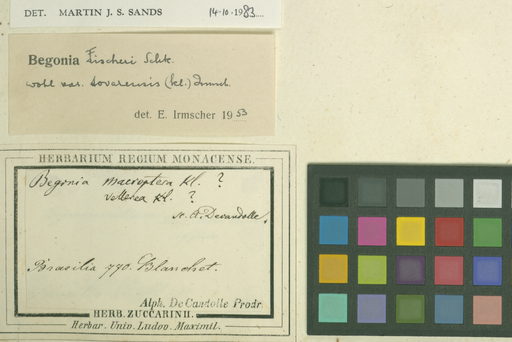 DET. MARTIN J. S. SANDS 14-10-1983
Begonia Fischeri Schk.
wohl var. tovarensis (Kl.) Irmsch.
det. E. Irmscher 1953
HERBARIUM REGIUM MONACENSE.
Begonia macroptera Kl. ?
vellerea Kl. ?
A. Decandolle.
Brasilia 770. Blanchet.
Alph. De Candolle Prodr.
HERB. ZUCCARINII.
Herbar. Univ. Ludov. Maximil.